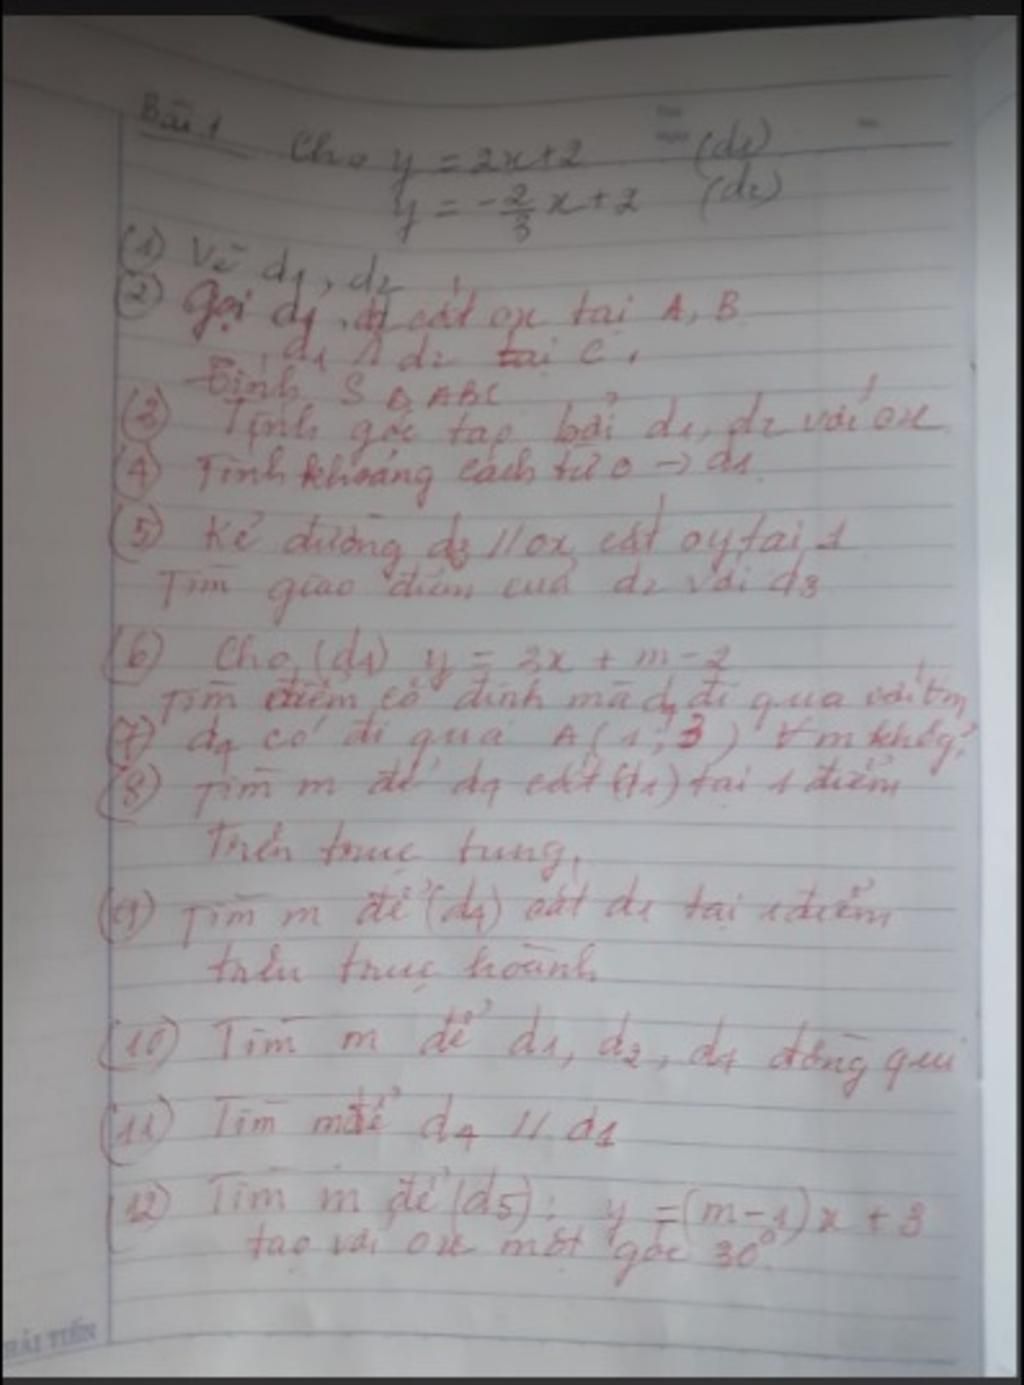 Bài 1 Cho y = 2x+2 (d1)
y = -2/3 x+2 (d2)
(1) Vẽ d1, d2
(2) Gọi d1, d2 cắt ox tại A, B
d1 ∩ d2 tại C.
Tính S Δ ABC
(3) Tính góc tạo bởi d1, d2 với ox
(4) Tính khoảng cách từ O → d1
(5) Kẻ đường d3 // ox cắt oy tại 1
Tìm giao điểm của d2 với d3
(6) Cho (d4) y = x + m - 2
Tìm điểm cố định mà d4 đi qua với ∀m
(7) d4 có đi qua A(1; 3) ∀m không?
(8) Tìm m để d4 cắt (d1) tại 1 điểm
trên trục tung.
(9) Tìm m để (d4) cắt d1 tại 1 điểm
trên trục hoành
(10) Tìm m để d1, d2, d4 đồng qui
(11) Tìm m để d4 // d1
(12) Tìm m để (d5): y = (m-1)x + 3
tạo với ox một góc 30°
HẢI TIẾN